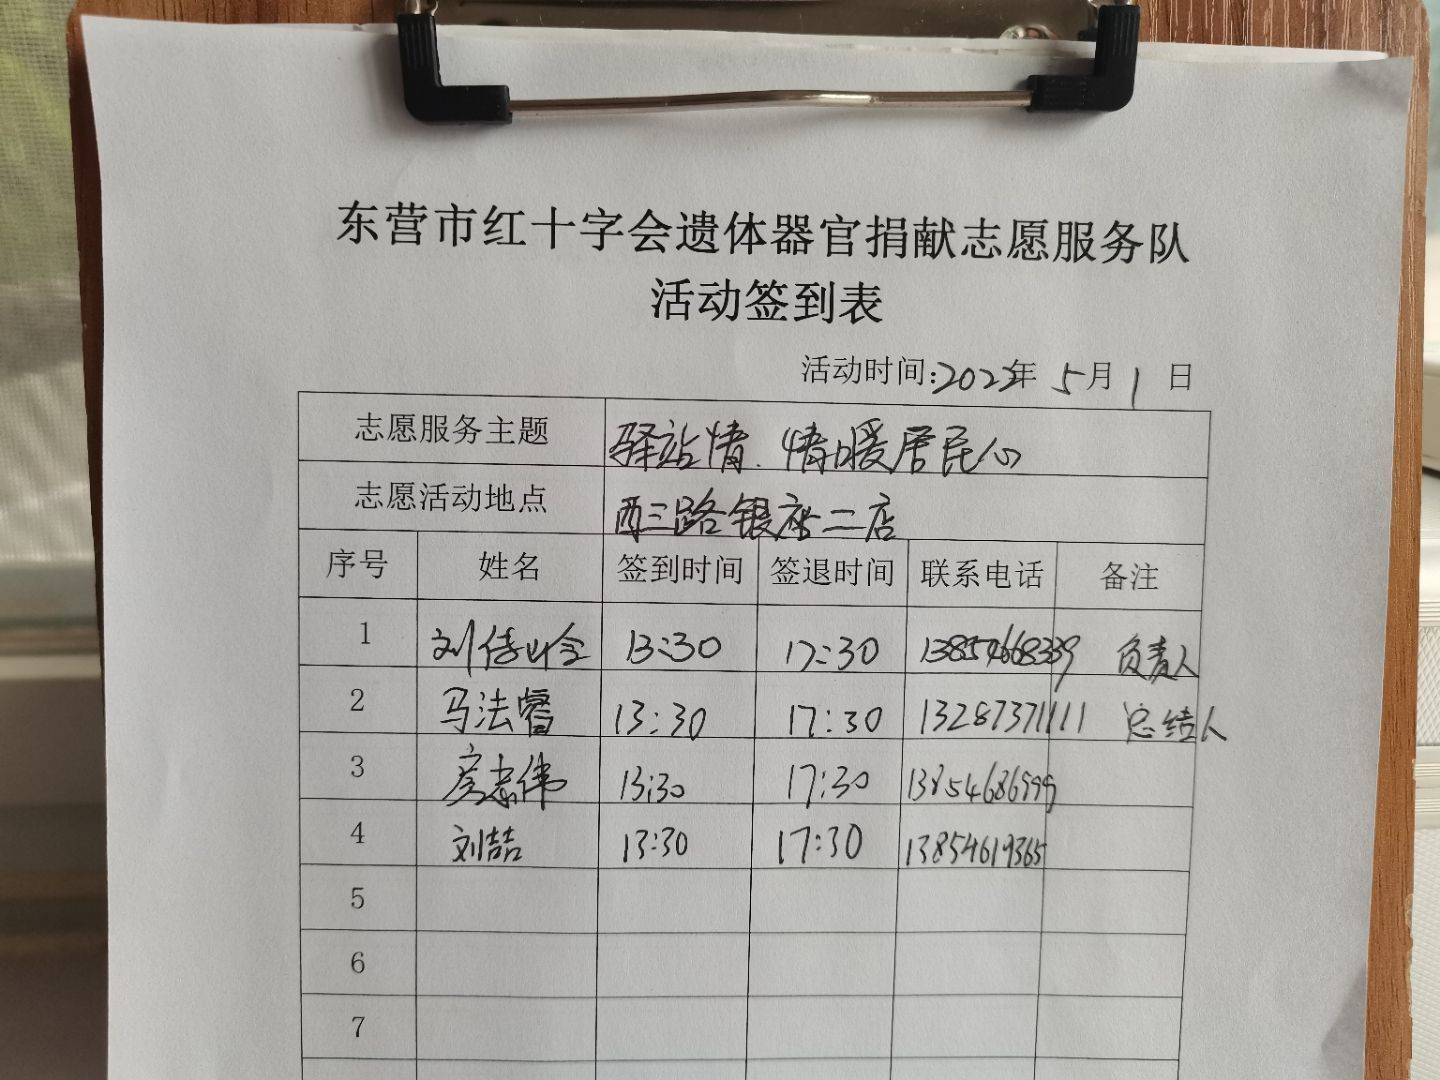 东营市红十字会遗体器官捐献志愿服务队
活动签到表
活动时间:2022年 5月 1 日
志愿服务主题 驿站情.情暖居民心
志愿活动地点 西三路银座二店
序号 姓名 签到时间 签退时间 联系电话 备注
1 刘 13:30 17:30 负责人
2 马法睿 13:30 17:30 13287371111 总结人
3 彦志伟 13:30 17:30 13854686999
4 刘喆 13:30 17:30 13854619365
5
6
7